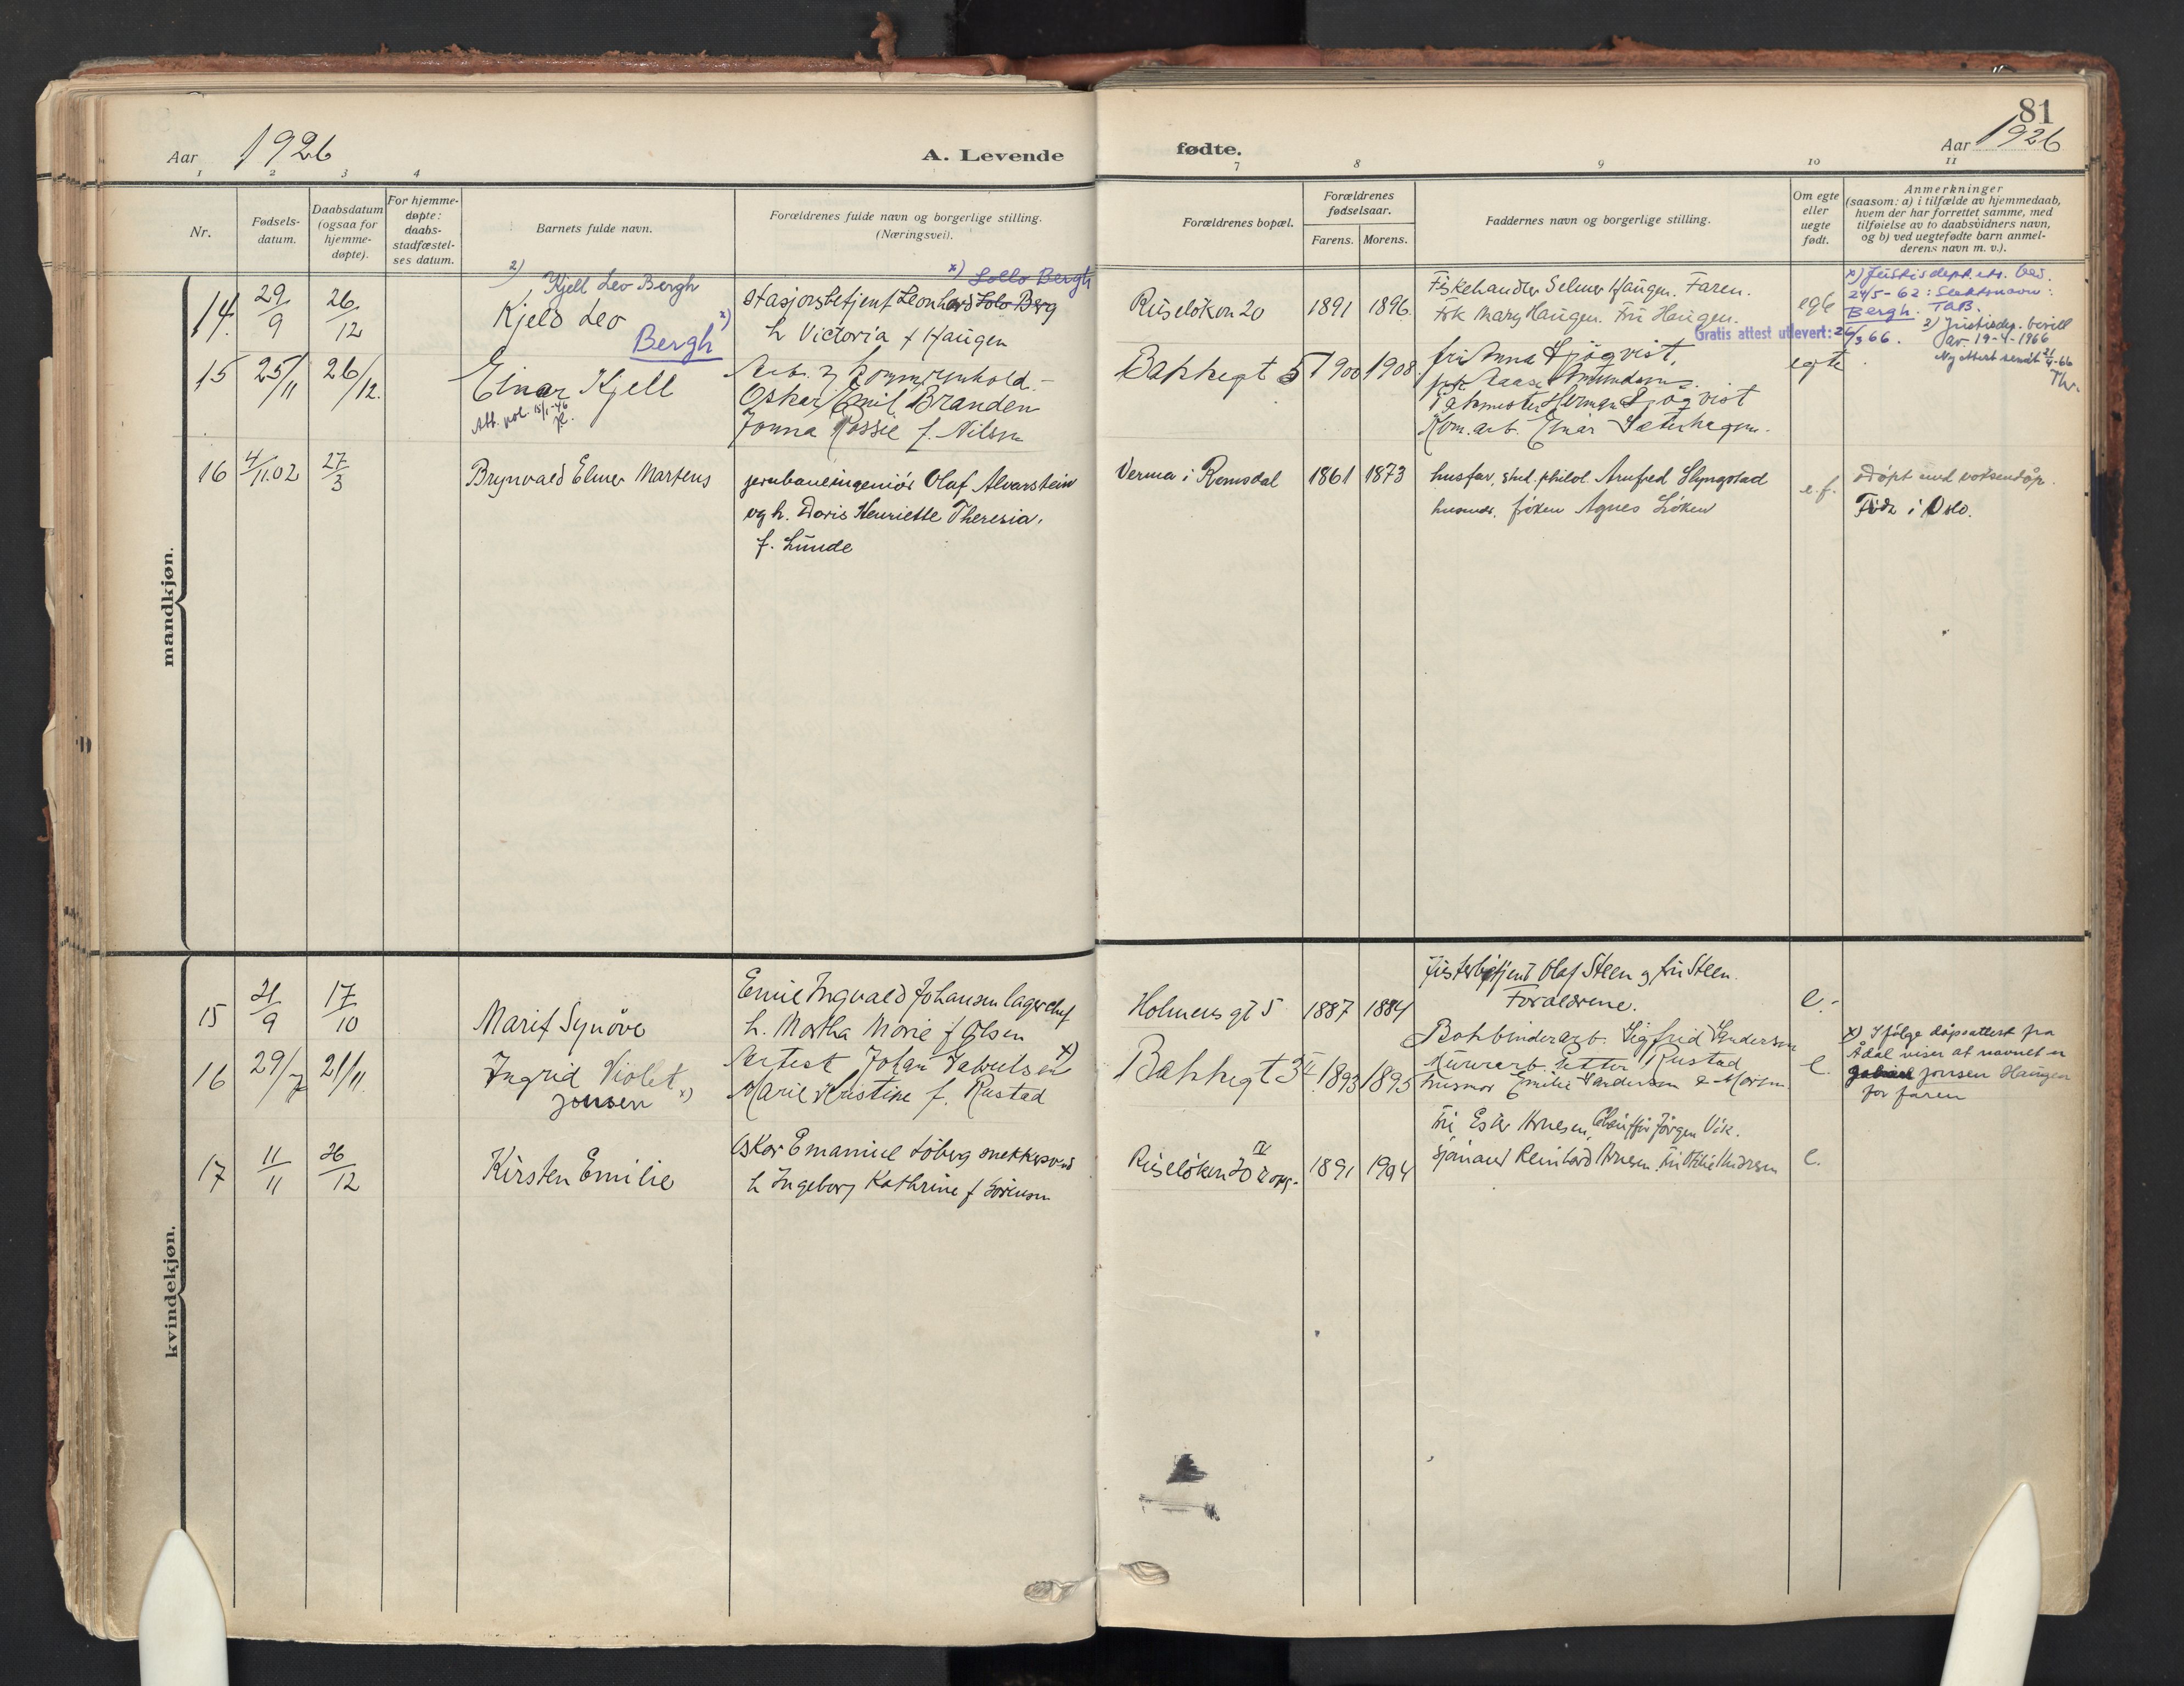 81
Aar 1926
A. Levende
fødte.
Aar 1926
1 2 3 4 7 8 9 10 11
Nr.
Fødsels-
datum.
Daabsdatum
(ogsaa for
hjemme-
døpte).
For hjemme-
døpte:
daabs-
stadfæstel-
ses datum.
Barnets fulde navn.
Forældrenes fulde navn og borgerlige stilling.
(Næringsvei).
Forældrenes bopæl.
Forældrenes
fødselsaar.
Farens. Morens.
Faddernes navn og borgerlige stilling.
Om egte
eller
uegte
født.
Anmerkninger
(saasom: a) i tilfælde av hjemmedaab,
hvem der har forrettet samme, med
tilføielse av to daabsvidners navn,
og b) ved uegtefødte barn anmel-
derens navn m. v.).
mandkjøn.
14. 29/9 26/12
2) Kjell Leo Bergh
Kjeld Leo
Bergh x)
x) Lollo Bergh
Stasjonsbetjent Leonhard Lolo Berg
h Victoria f Haugen
Ruseløkvn 20
1891 1896
Fiskehandler Selmer Haugen. Faren.
Frk Mary Haugen. Fru Haugen.
Gratis attest utlevert: 26/3 66.
egte
x) Justisdept. etr. bev.
24/5-62: Slektsnavn:
Bergh. TaB.
2) Justisdep. bevill
av. 19-4-1966
Ny attest sendt 21/4-66
Th.
15 25/11 26/12.
Einar Kjell
Att. vol. 15/1-46
Oskar Emil Branden
Jonna Kassie f. Nilsen
Bakkegt 5
1900 1908
fru Anna Sjøqvist,
Herman Sjøqvist
Kom. arb. Einar Sæterhagen.
egte
16 4/11.02 27/3
Brynvald Elmer Martens
jernbaneingeniør Olaf Alvarstein
og h. Doris Henriette Theresia,
f. Lunde
Verma i Romsdal
1861 1873
husfar, stud. philol. Arnfred Slyngstad
husmor, frøken Agnes Løken
e.f.
Døpt med voksendåp.
Født i Oslo.
kvindekjøn.
15 21/9 17/10
Marit Synøve
Emil Ingvald Johansen lagerchef
h. Martha Marie f Olsen
Holmens gt 5
1887 1884
Olaf Steen og fru Steen.
Forældrene.
e.
16 29/7 21/11.
Ingrid Violet
Jonsen x)
Artist Johan Gabrielsen x)
Marie Kristine f. Rustad
Bakkegt 3 II
1893 1895
Bokbinderarb. Sigfrid Sandersen
Murerarb. Petter Rustad
husmor Emilie Sandersen & Moren
e.
x) Ifølge dåpsattest fra
Ådal viser at navnet er
Jonsen Haugen
for faren
17 11/11 26/12
Kirsten Emilie
Oskar Emanuel Løberg snekkersvend
h Ingeborg Kathrine f Sørensen
Ruseløkvn 20 IV opg.
1891 1994
Fru Ester Arnesen, Chauffør Jørgen Vik.
Sjømand Reinhard Arnesen. Fru Otilie Andresen
e.